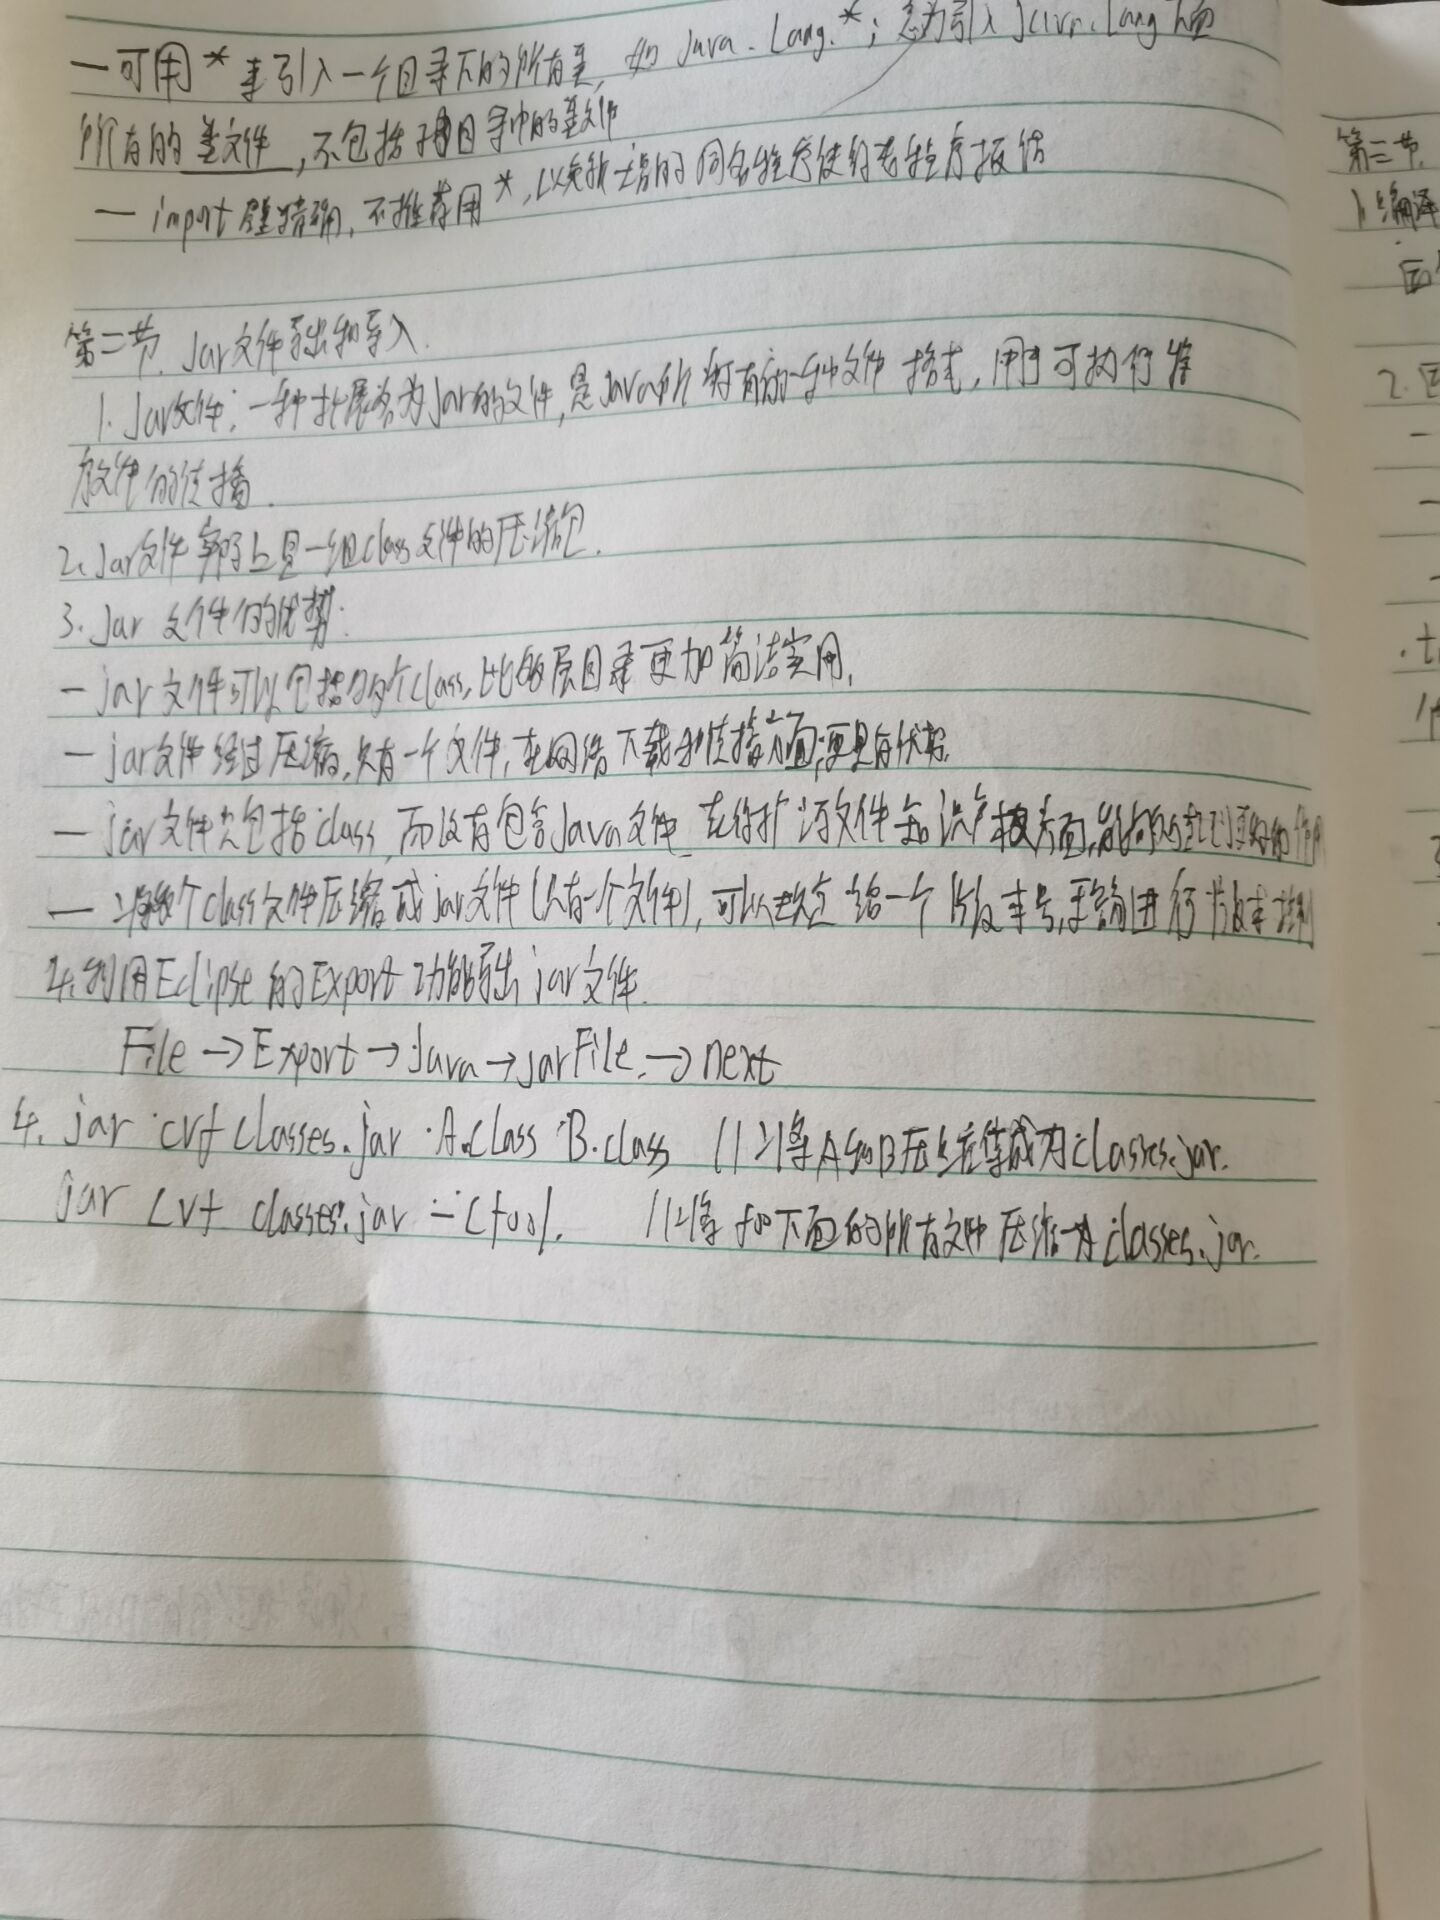 一可用*来引入一个目录下的所有类, 如 java.lang.*; 意为引入java.lang下面
所有的类文件,不包括子目录中的类文件
一 import 尽量精确,不推荐用*,以免新增的同名程序使得老程序报错
第二节. Jar文件导出和导入.
1. Jar文件: 一种扩展名为jar的文件,是Java所特有的一种文件格式,用于可执行程
序文件的传播.
2. Jar文件实际上是一组class文件的压缩包.
3. Jar 文件的优势:
一 jar 文件可以包括多个class,比多层目录更加简洁实用.
一 jar文件经过压缩,只有一个文件,在网络下载和传播方面,更具有优势.
一 jar文件只包括class,而没有包含Java文件 在保护源文件知识产权方面,能够起到更好的作用
一 将多个class文件压缩成jar文件(只有一个文件),可以 给一个版本号,容易进行版本控制
4.利用Eclipse的Export功能导出jar文件.
File→Export→Java→jarFile.→next
4. jar cvf classes.jar A.class B.class //将A和B压缩 成为classes.jar.
jar cvf classes.jar -C foo/. //将foo下面的所有文件压缩为classes.jar.
第三节.
1.编译
2.